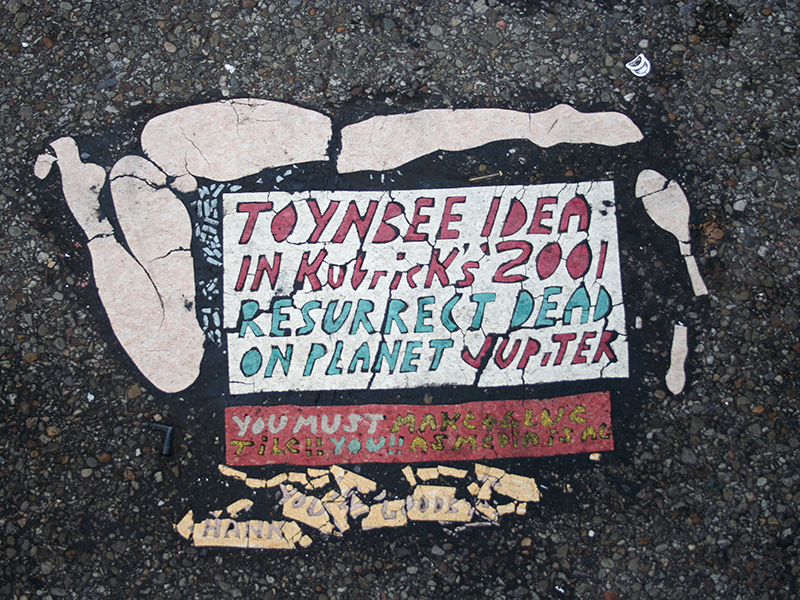 TOYNBEE IDEA
IN KubricK's '2001
RESURRECT DEAD
ON PLANET JUPiTER
YOU MUST MAKE + GLUE
TILE!! YOU!! AS MEDIA IS
YOU GOODBYE
HANK